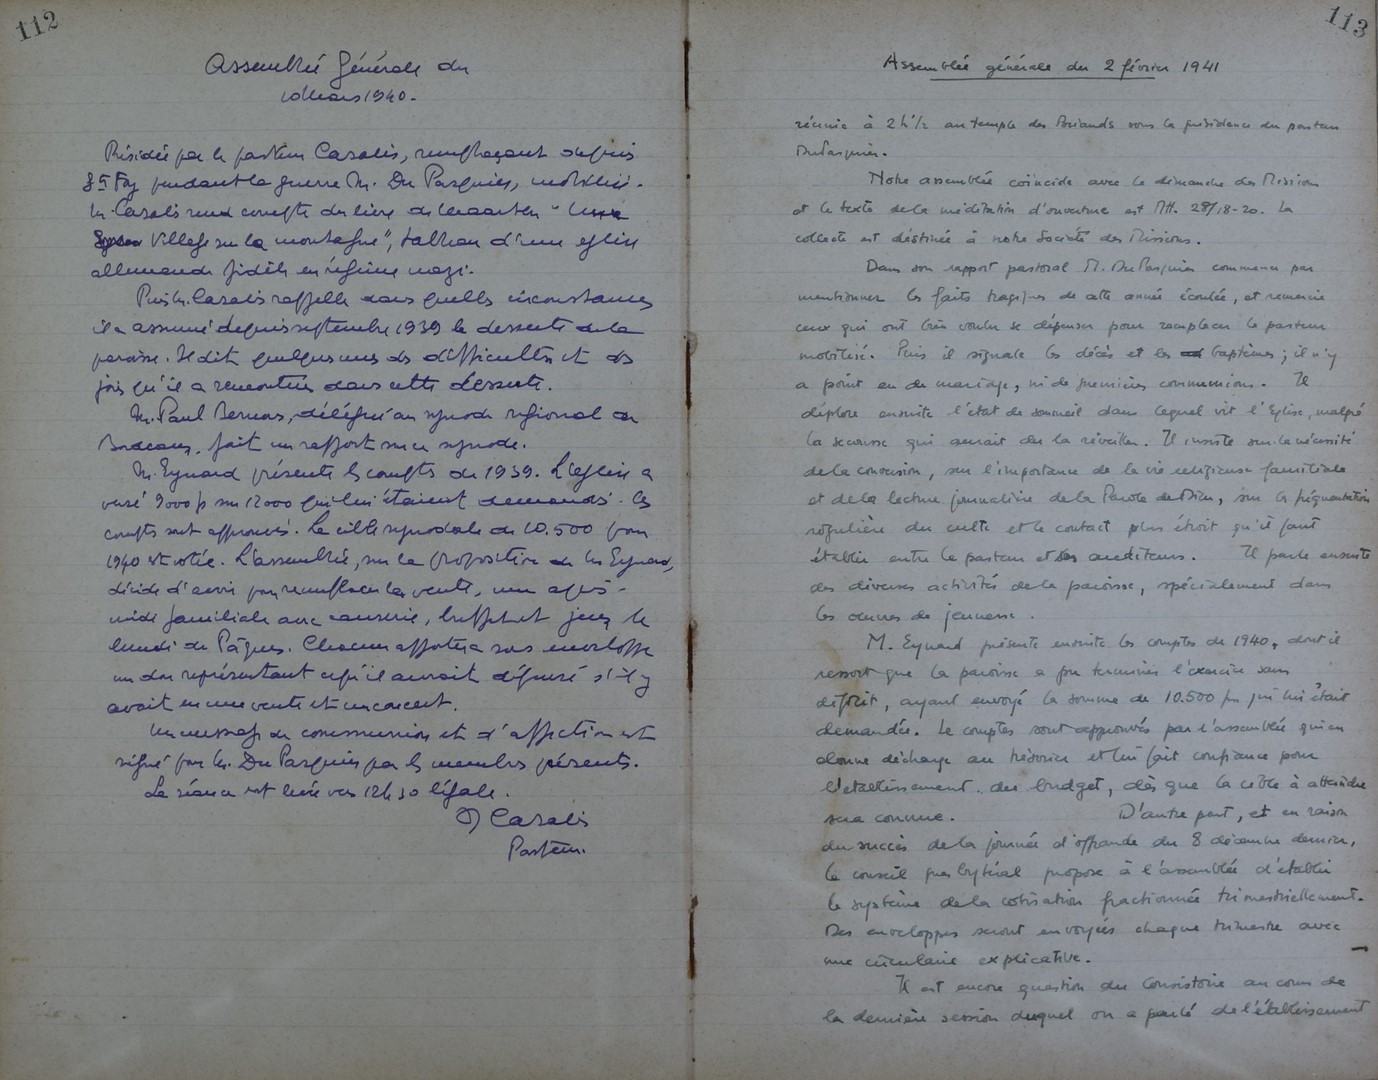 112
Assemblée Générale du
10 Mars 1940.
Présidée par le pasteur Casalis, remplaçant depuis
Ste Foy pendant la guerre M. Du Pasquier, mobilisé.
M. Casalis rend compte du livre de "Un
Village sur la montagne", tableau d'une église
allemande fidèle en régime nazi.
Puis M. Casalis rappelle dans quelles circonstances
il a assumé depuis septembre 1939 la desserte de la
paroisse. Il dit quelques unes des difficultés et des
joies qu'il a rencontrées dans cette desserte.
M. Paul Bernars, délégué au synode régional de
Bordeaux, fait un rapport sur ce synode.
M. Eynard présente les comptes de 1939. L'église a
versé 9000 f sur 12000 qui lui étaient demandés. Ces
comptes sont approuvés. La cible synodale de 10.500 pour
1940 est votée. L'assemblée, sur la proposition de M. Eynard,
décide d'avoir pour remplacer la vente, une après-
midi familiale avec causerie, buffet et jeux le
lundi de Pâques. Chacun apportera sous enveloppe
un don représentant ce qu'il aurait dépensé s'il y
avait eu une vente et un concert.
Un message de communion et d'affection est
signé pour M. Du Pasquier par les membres présents.
La séance est levée vers 12h 30 légale.
Casalis
Pasteur.
113
Assemblée générale du 2 février 1941
réunie à 2 h 1/2 au temple des Briands sous la présidence du pasteur
DuPasquier.
Notre assemblée coïncide avec le dimanche des Missions
et le texte de la méditation d'ouverture est Mt. 28/18-20. La
collecte est destinée à notre Société des Missions.
Dans son rapport pastoral M. DuPasquier commence par
mentionner les faits tragiques de cette année écoulée, et remercie
ceux qui ont bien voulu se dépenser pour remplacer le pasteur
mobilisé. Puis il signale les décès et les baptêmes ; il n'y
a point eu de mariage, ni de premières communions. Il
déplore ensuite l'état de sommeil dans lequel vit l'Eglise, malgré
la secousse qui aurait dû la réveiller. Il insiste sur la nécessité
de la conversion, sur l'importance de la vie religieuse familiale
et de la lecture journalière de la Parole de Dieu, sur la fréquentation
régulière du culte et le contact plus étroit qu'il faut
établir entre le pasteur et ses auditeurs. Il parle ensuite
des diverses activités de la paroisse, spécialement dans
les œuvres de jeunesse.
M. Eynard présente ensuite les comptes de 1940, dont il
ressort que la paroisse a pu terminer l'exercice sans
déficit, ayant envoyé la somme de 10.500 frs qui lui était
demandée. Les comptes sont approuvés par l'assemblée qui en
donne décharge au trésorier et lui fait confiance pour
l'établissement du budget, dès que la cible à atteindre
sera connue. D'autre part, et en raison
du succès de la journée d'offrande du 8 décembre dernier,
le conseil presbytéral propose à l'assemblée d'établir
le système de la cotisation fractionnée trimestriellement.
Des enveloppes seront envoyées chaque trimestre avec
une circulaire explicative.
Il est encore question du Consistoire au cours de
la dernière session duquel on a parlé de l'établissement